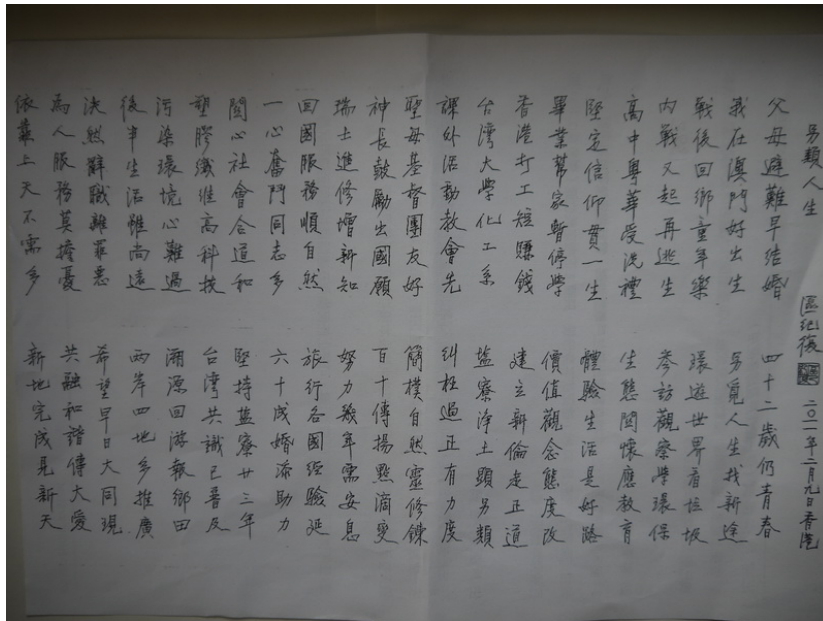 另類人生
區紀復 二〇一一年二月九日香港
父母避難早結婚
我在澳門好出生
戰後回鄉童年樂
內戰又起再逃生
高中粵華受洗禮
堅定信仰貫一生
畢業幫家暫停學
香港打工短賺錢
台灣大學化工系
課外活動教會先
聖母基督團友好
神長鼓勵出國願
瑞士進修增新知
回國服務順自然
一心奮鬥同志多
關心社會合道和
塑膠纖維高科技
污染環境心難過
後半生活雖尚遠
決然辭職離罪惡
為人服務莫擔憂
依靠上天不需多
四十二歲仍青春
另覓人生找新途
環遊世界看垃圾
參訪觀察學環保
生態關懷應教育
體驗生活是好路
價值觀念態度改
建立新倫走正道
鹽寮淨土顯另類
糾枉過正有力度
簡樸自然靈修鍊
百十傳揚點滴變
努力幾年需安息
旅行各國經驗延
六十成婚添助力
堅持鹽寮廿三年
台灣共識已普及
溯源回游報鄉田
兩岸四地多推廣
希望早日大同現
共融和諧傳大愛
新地完成見新天